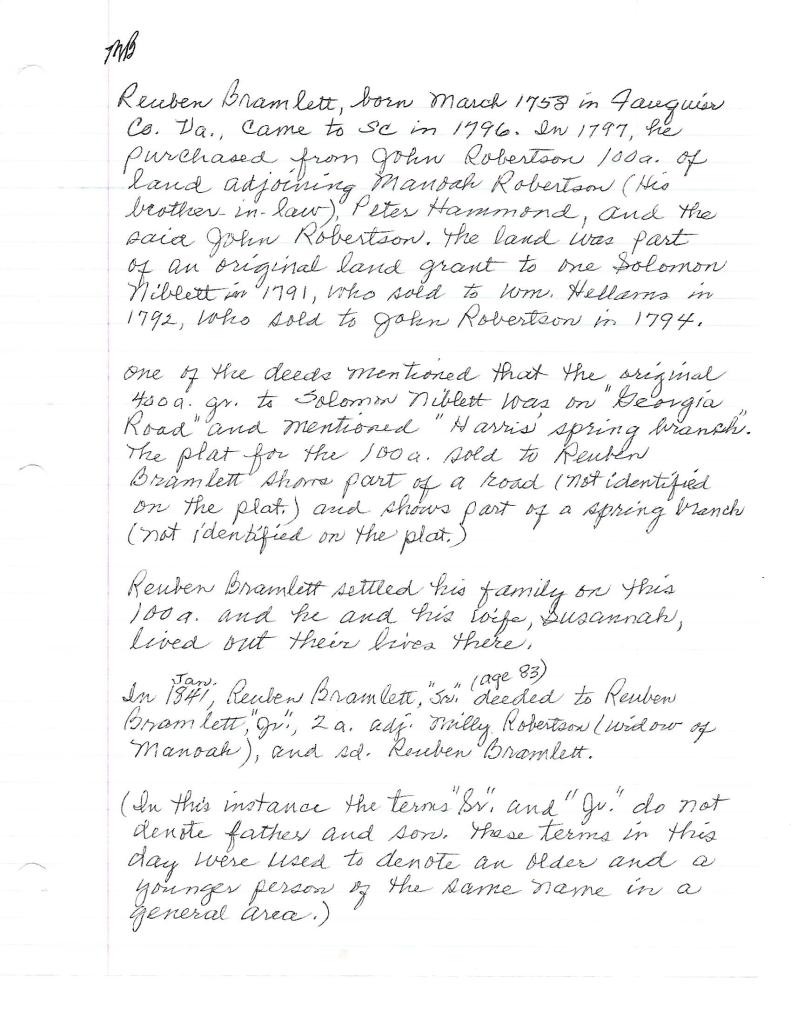 MB
Reuben Bramlett, born March 1758 in Fauquier
Co. Va., came to SC in 1796. In 1797, he
purchased from John Robertson 100a. of
land adjoining Manoah Robertson (His
brother-in-law), Peter Hammond, and the
said John Robertson. The land was part
of an original land grant to one Solomon
Niblett in 1791, who sold to Wm. Hellams in
1792, who sold to John Robertson in 1794.
One of the deeds mentioned that the original
400a. gr. to Solomon Niblett was on "Georgia
Road" and mentioned "Harris' spring branch".
The plat for the 100a. sold to Reuben
Bramlett shows part of a road (not identified
on the plat.) and shows part of a spring branch
(not identified on the plat.)
Reuben Bramlett settled his family on this
100a. and he and his wife, Susannah,
lived out their lives there.
Jan. (age 83)
In 1841, Reuben Bramlett, "Sr." deeded to Reuben
Bramlett, "Jr.", 2a. adj. Milly Robertson (widow of
Manoah), and sd. Reuben Bramlett.
(In this instance the terms "Sr." and "Jr." do not
denote father and son. These terms in this
day were used to denote an older and a
younger person of the same name in a
general area.)